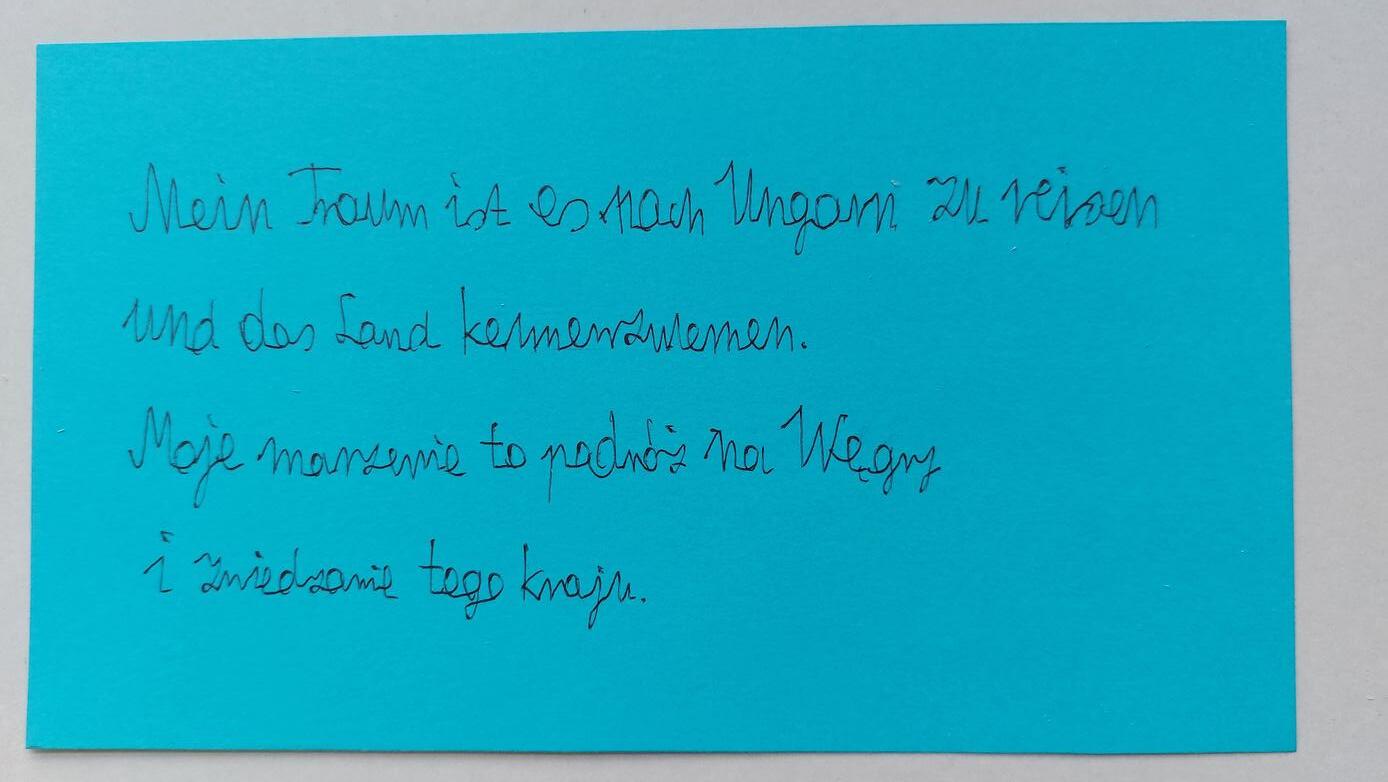 Mein Traum ist es nach Ungarn zu reisen
und das Land kennenzulernen.
Moje marzenie to podróż na Węgry
i zwiedzanie tego kraju.